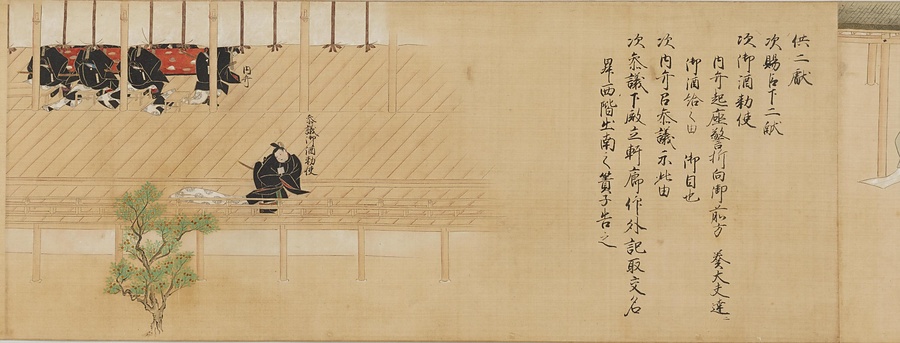 供二献
次賜臣下二献
次御酒勅使
内弁起座警折向御前方 奏大夫達ニ
御酒給ハ由 御目也
次内弁召参議示此由
次参議下殿立軒廊仰外記取交名
昇西階出南之簀子告之
参議御酒勅使
内弁